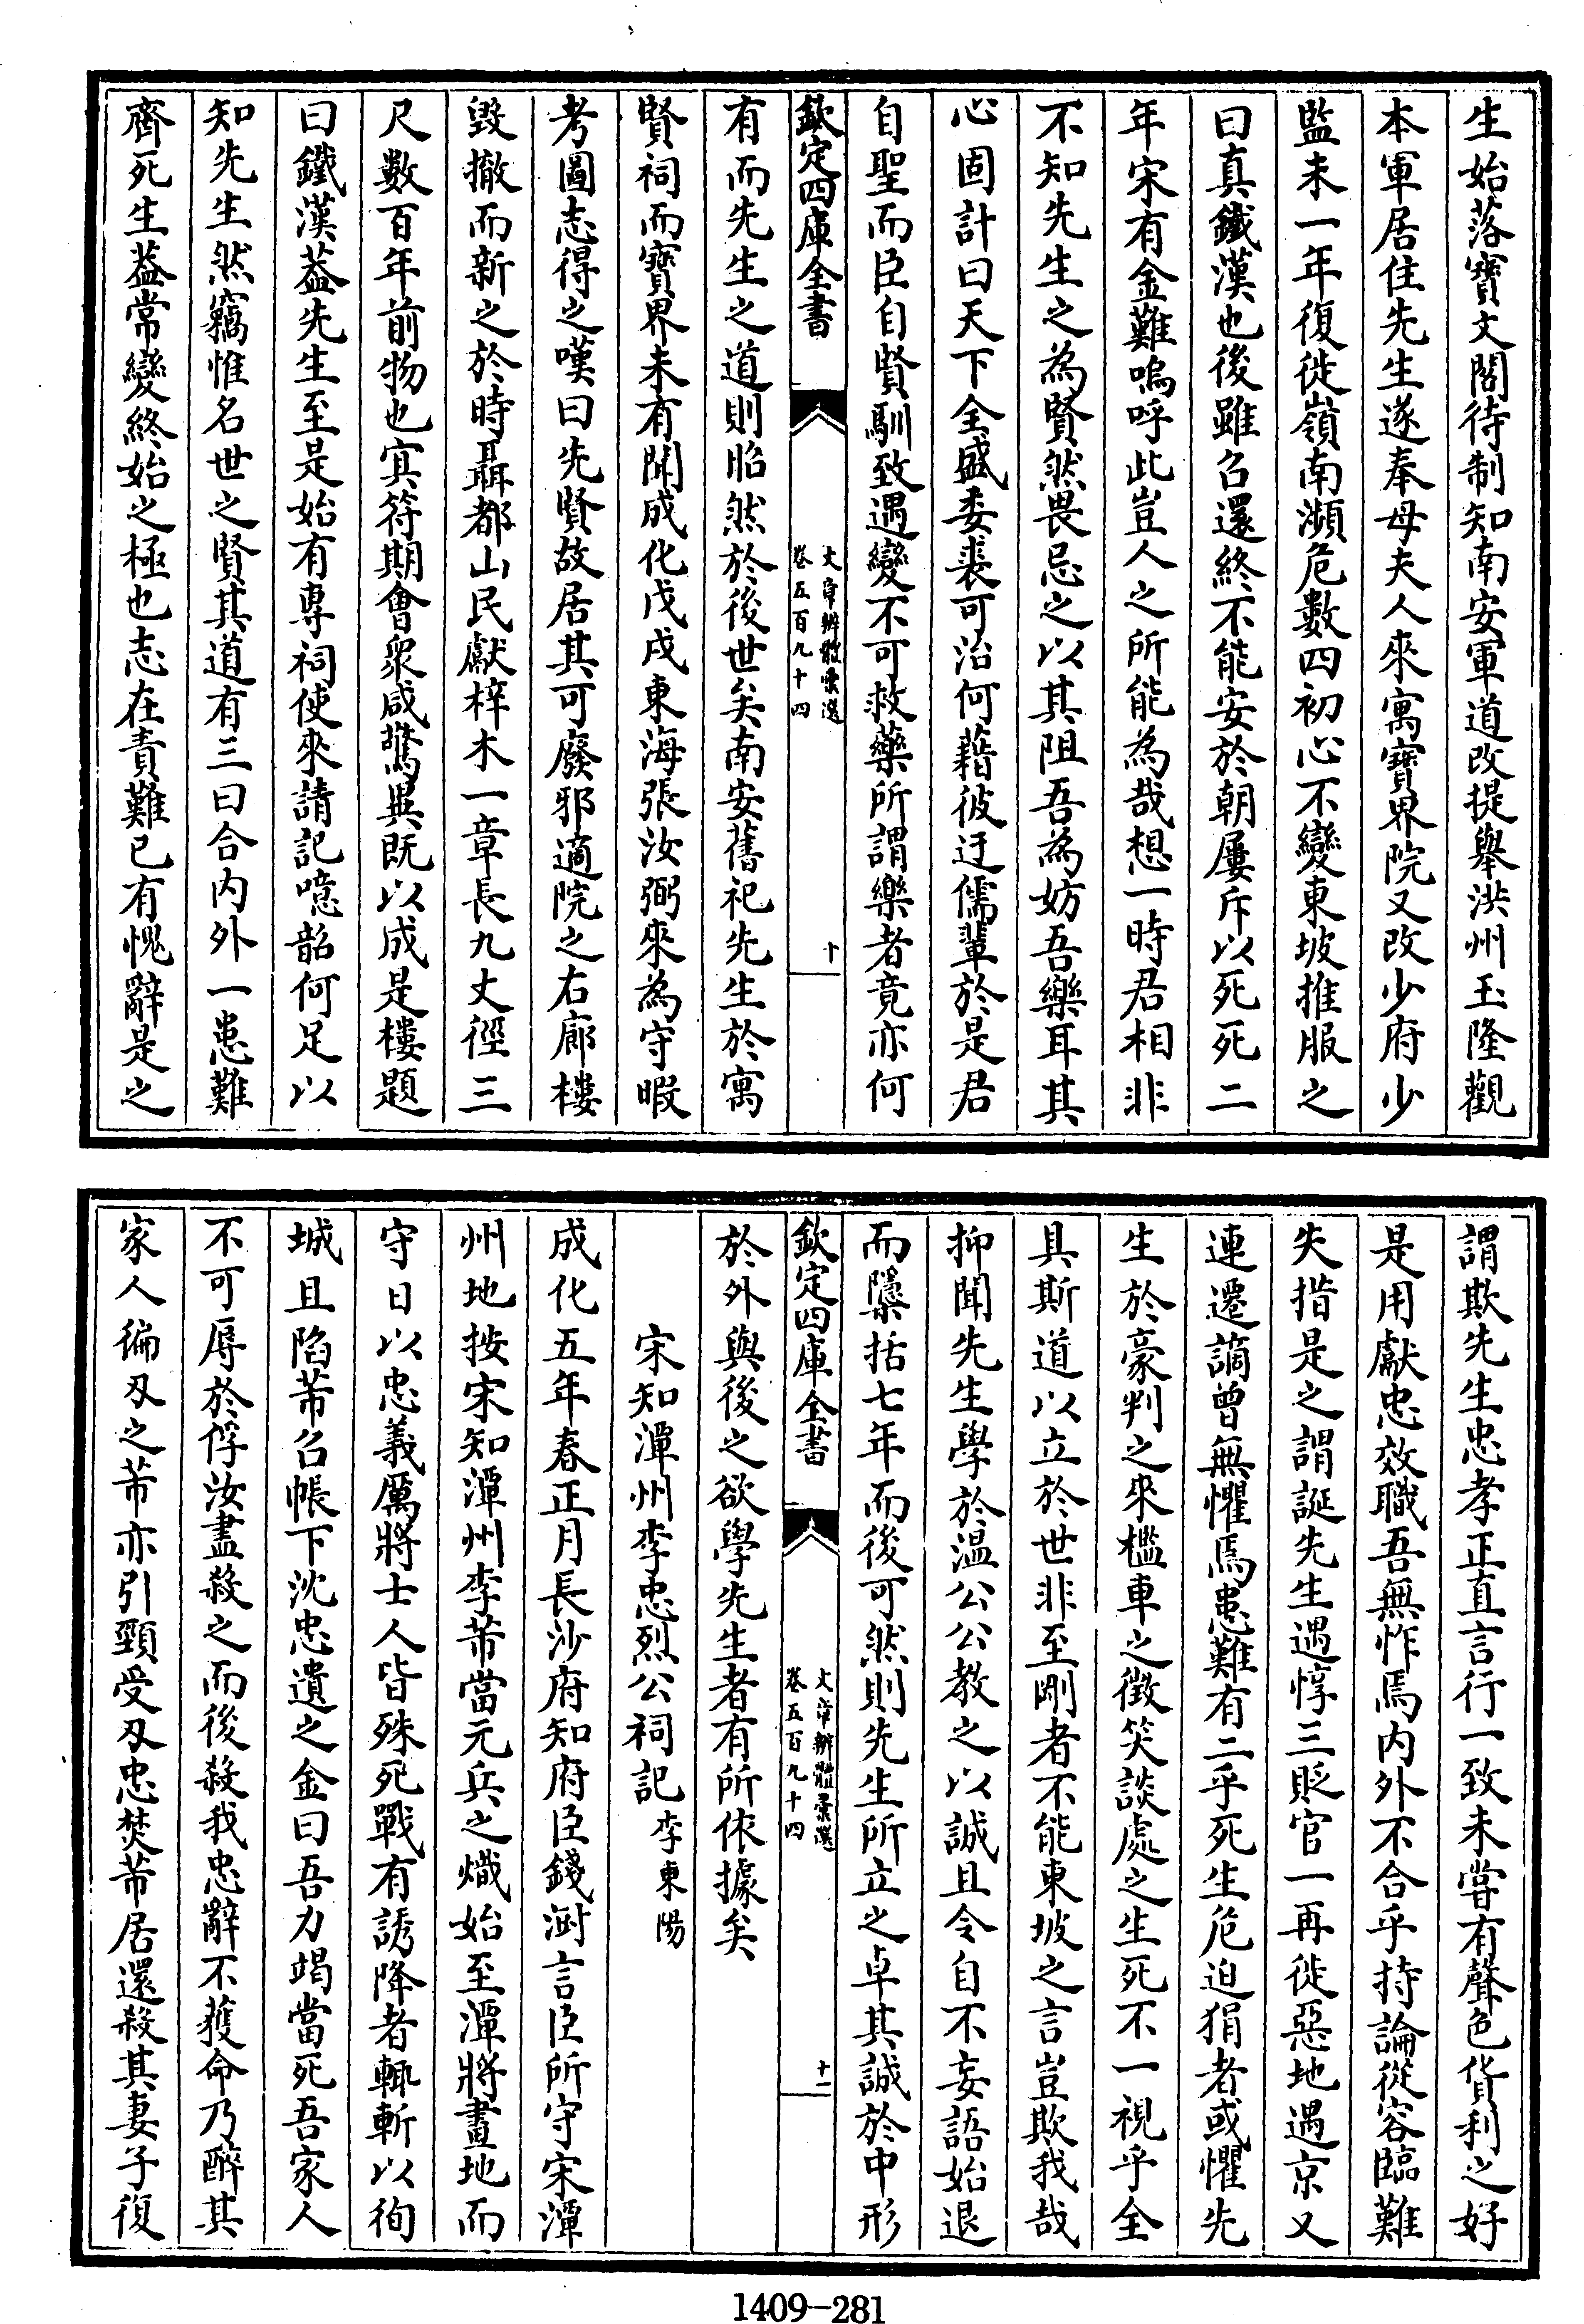 生始落寶文閣待制知南安軍道改提舉洪州玉隆觀
本軍居住先生遂奉母夫人來寓寶界院又改少府少
監未一年復徙嶺南瀕危數四初心不變東坡推服之
曰真鐵漢也後雖召還終不能安於朝屢斥以死死二
年宋有金難嗚呼此豈人之所能為哉想一時君相非
不知先生之為賢然畏忌之以其阻吾為妨吾樂耳其
心固計曰天下全盛委裘可治何藉彼迂儒輩於是君
自聖而臣自賢馴致遇變不可救藥所謂樂者竟亦何
欽定四庫全書
文章辨體彙選
卷五百九十四
十
有而先生之道則昭然於後世矣南安舊祀先生於寓
賢祠而寶界未有聞成化戊戌東海張汝弼來為守暇
考圖志得之嘆曰先賢故居其可廢邪適院之右廊樓
毀撤而新之於時聶都山民獻梓木一章長九丈徑三
尺數百年前物也寘符期會衆咸驚異既以成是樓題
曰鐵漢葢先生至是始有專祠使來請記噫韶何足以
知先生然竊惟名世之賢其道有三曰合内外一患難
齊死生葢常變終始之極也志在責難已有愧辭是之
謂欺先生忠孝正直言行一致未嘗有聲色貨利之好
是用獻忠效職吾無怍焉内外不合乎持論從容臨難
失措是之謂誕先生遇惇三貶官一再徙惡地遇京又
連遷謫曾無懼焉患難有二乎死生危迫狷者或懼先
生於豪判之來檻車之徵笑談處之生死不一視乎全
具斯道以立於世非至剛者不能東坡之言豈欺我哉
抑聞先生學於温公公教之以誠且令自不妄語始退
而隱括七年而後可然則先生所立之卓其誠於中形
欽定四庫全書
文章辨體彙選
卷五百九十四
十一
於外與後之欲學先生者有所依據矣
宋知潭州李忠烈公祠記 李東陽
成化五年春正月長沙府知府臣錢澍言臣所守宋潭
州地按宋知潭州李芾當元兵之熾始至潭將畫地而
守日以忠義厲將士人皆殊死戰有誘降者輒斬以徇
城且陷芾召帳下沈忠遺之金曰吾力竭當死吾家人
不可辱於俘汝盡殺之而後殺我忠辭不獲命乃醉其
家人徧刃之芾亦引頸受刃忠焚芾居還殺其妻子復
1409-281